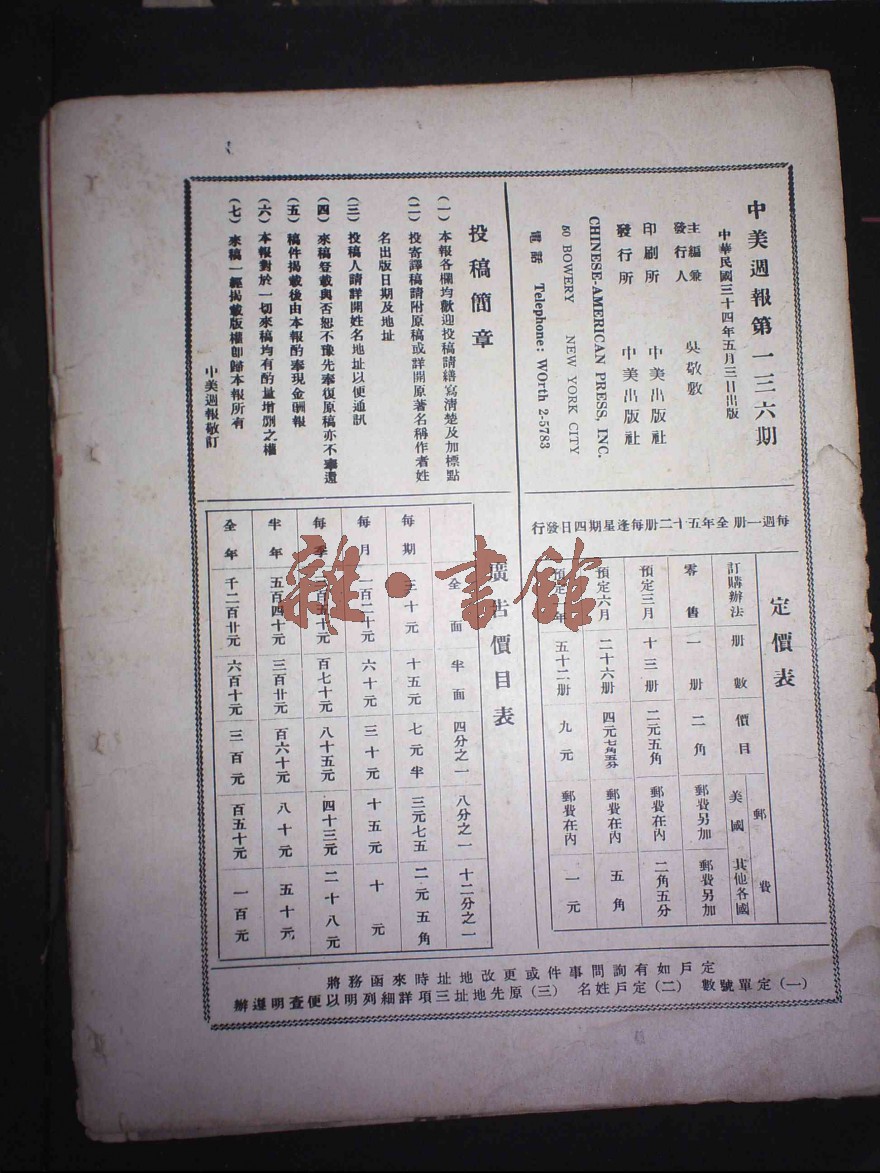 中美週報第一三六期
中華民國三十四年五月三日出版
主編兼發行人 吳敬敷
印刷所 中美出版社
發行所 中美出版社
CHINESE-AMERICAN PRESS, INC.
50 BOWERY NEW YORK CITY
電話 Telephone: WOrth 2-5783
投稿簡章
(一)本報各欄均歡迎投稿請繕寫清楚及加標點
(二)投寄譯稿請附原稿或詳開原著名稱作者姓
名出版日期及地址
(三)投稿人請詳開姓名地址以便通訊
(四)來稿登載與否恕不豫先奉復原稿亦不奉還
(五)稿件揭載後由本報酌奉現金酬報
(六)本報對於一切來稿均有酌量增刪之權
(七)來稿一經揭載版權卽歸本報所有
中美週報敬訂
每週一册全年五十二册每逢星期四日發行
定價表
訂購辦法 册數 價目 郵費 美國 其他各國
零售 一册 二角 郵費另加 郵費另加
預定三月 十三册 二元五角 郵費在內 二角五分
預定六月 二十六册 四元七角五分 郵費在內 五角
預定 年 五十二册 九元 郵費在內 一元
廣告價目表
全面 半面 四分之一 八分之一 十二分之一
每期 三十元 十五元 七元半 三元七五 二元五角
每月 一百二十元 六十元 三十元 十五元 十元
每季 百七十元 八十五元 四十三元 二十八元
半年 五百四十元 三百廿元 百六十元 八十元 五十元
全年 千二百廿元 六百十元 三百元 百五十元 一百元
定戶如有詢問事件或更改地址時來函務將
(一)定單號數 (二)定戶姓名 (三)原先地址三項詳細列明以便查明遵辦
雜·書館